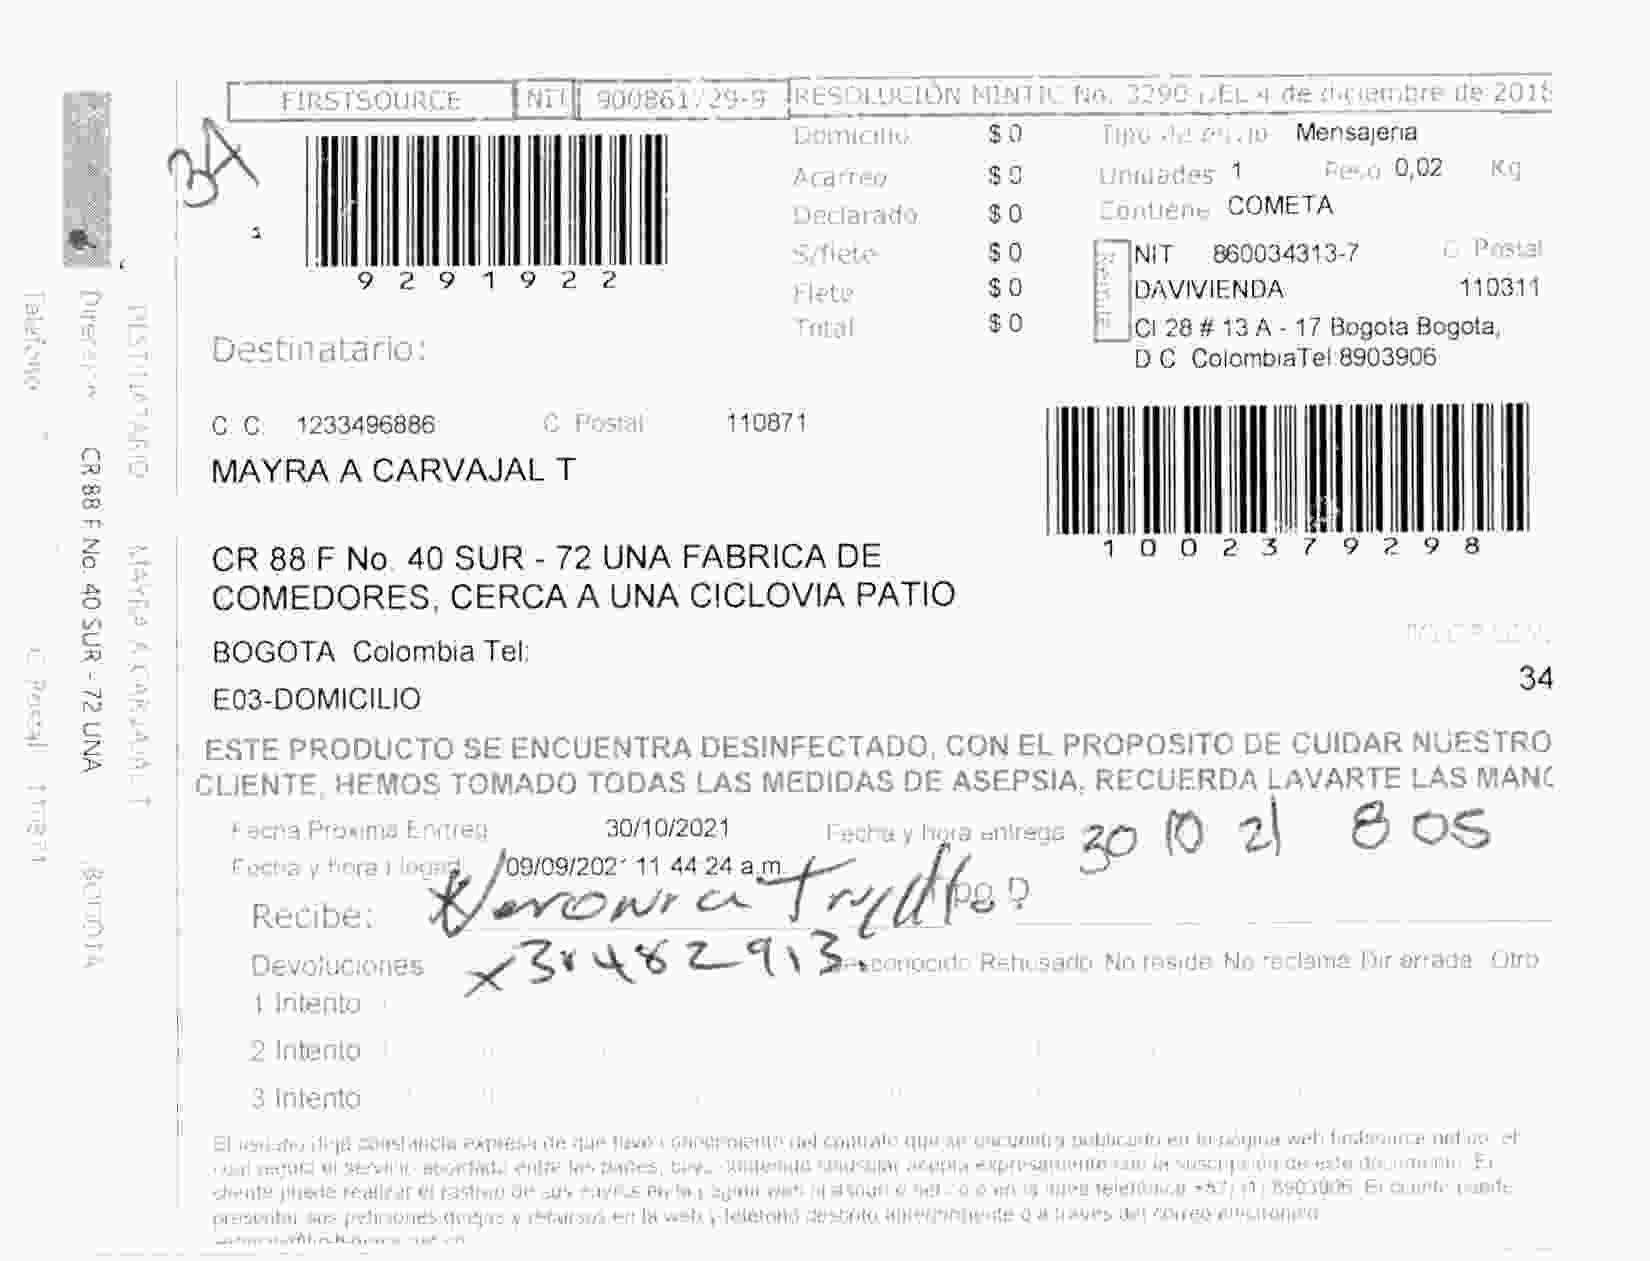 FIRSTSOURCE NIT 900861729-9 RESOLUCIÓN MINTIC No. 3290 DEL 4 de diciembre de 2018
34
1
9291922
Domicilio $ 0
Acarreo $ 0
Declarado $ 0
S/flete $ 0
Flete $ 0
Total $ 0
Tipo de envio Mensajeria
Unidades 1 Peso 0,02 Kg
Contiene COMETA
Remite
NIT 860034313-7 C Postal
DAVIVIENDA 110311
Cl 28 # 13 A - 17 Bogota Bogota,
D C Colombia Tel 8903906
Destinatario:
C. C. 1233496886 C Postal 110871
MAYRA A CARVAJAL T
1002379298
CR 88 F No. 40 SUR - 72 UNA FABRICA DE
COMEDORES, CERCA A UNA CICLOVIA PATIO
BOGOTA Colombia Tel:
E03-DOMICILIO
34
ESTE PRODUCTO SE ENCUENTRA DESINFECTADO, CON EL PROPOSITO DE CUIDAR NUESTRO
CLIENTE, HEMOS TOMADO TODAS LAS MEDIDAS DE ASEPSIA, RECUERDA LAVARTE LAS MANO
Fecha Proxima Entreg 30/10/2021 Fecha y hora entrega 30 10 21 8 05
Fecha y hora Llegad 09/09/2021 11 44 24 a.m.
Recibe: Veronica
Devoluciones Desconocido Rehusado No reside No reclama Dir errada Otro
1 Intento
2 Intento
3 Intento
El usuario deja constancia expresa de que tuvo conocimiento del contrato que se encuentra publicado en la pagina web
cual regula el servicio acordado entre las partes, cuyo contenido clausular acepta expresamente con la suscripción de este documento. El
cliente puede realizar el rastreo de sus envios en la pagina web o en la linea telefonica +57 (1) 8903906. El cliente puede
presentar sus peticiones quejas y recursos en la web y telefono descrito anteriormente o a traves del correo electronico
DESTINATARIO MAYRA A CARVAJAL T
CR 88 F No. 40 SUR - 72 UNA BOGOTA
Telefono C Postal